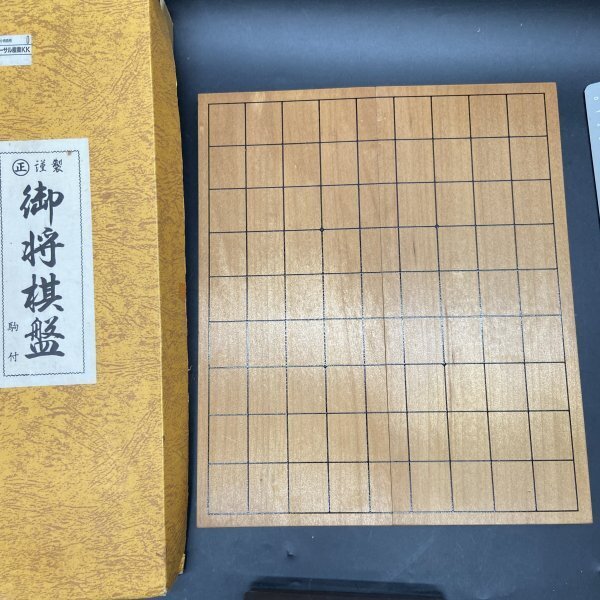 ーサル産業KK
㊣謹製
御将棋盤
駒付